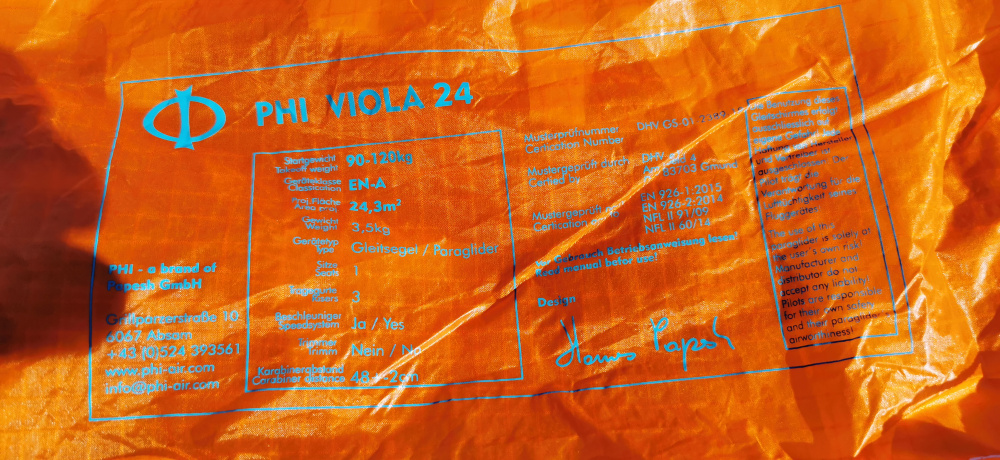 PHI VIOLA 24
Startgewicht
Takeoff weight
90-120kg
Geräteklasse
Classification
EN-A
Proj. Fläche
Area proj.
24,3m²
Gewicht
Weight
3,5kg
Gerätetyp
Type
Gleitsegel / Paraglider
Sitze
Seats
1
Tragegurte
risers
3
Beschleuniger
Speedsystem
Ja / Yes
Trimmer
Trimm
Nein / No
Karabinerabstand
Carabiner distance
PHI - a brand of
Papesh GmbH
Grillparzerstraße 10
6067 Absam
+43 (0)524 393561
www.phi-air.com
info@phi-air.com
Musterprüfnummer
Certication Number
DHV GS 01
Mustergeprüft durch
Certied by
83703 Gmund
Mustergeprüft
EN 926-1:2015
EN 926-2:2014
NFL II 91/09
NFL II 60/14
Betriebsanweisung lesen!
Read manual befor use!
Design
Hannes Papesh
Die Benutzung dieses
Gleitschirmes erfolgt
ausschliesslich auf
eigene Gefahr! Jede
Haftung des Herstellers
und Vertreiber ist
ausgeschlossen. Der
Pilot trägt die
Verantwortung für die
Lufttüchtigkeit seines
Fluggerätes.
The use of this
paraglider is solely at
the user's own risk!
Manufacturer and
distributor do not
accept any liability.
Pilots are responsible
for their own safety
and their paraglider
airworthiness!